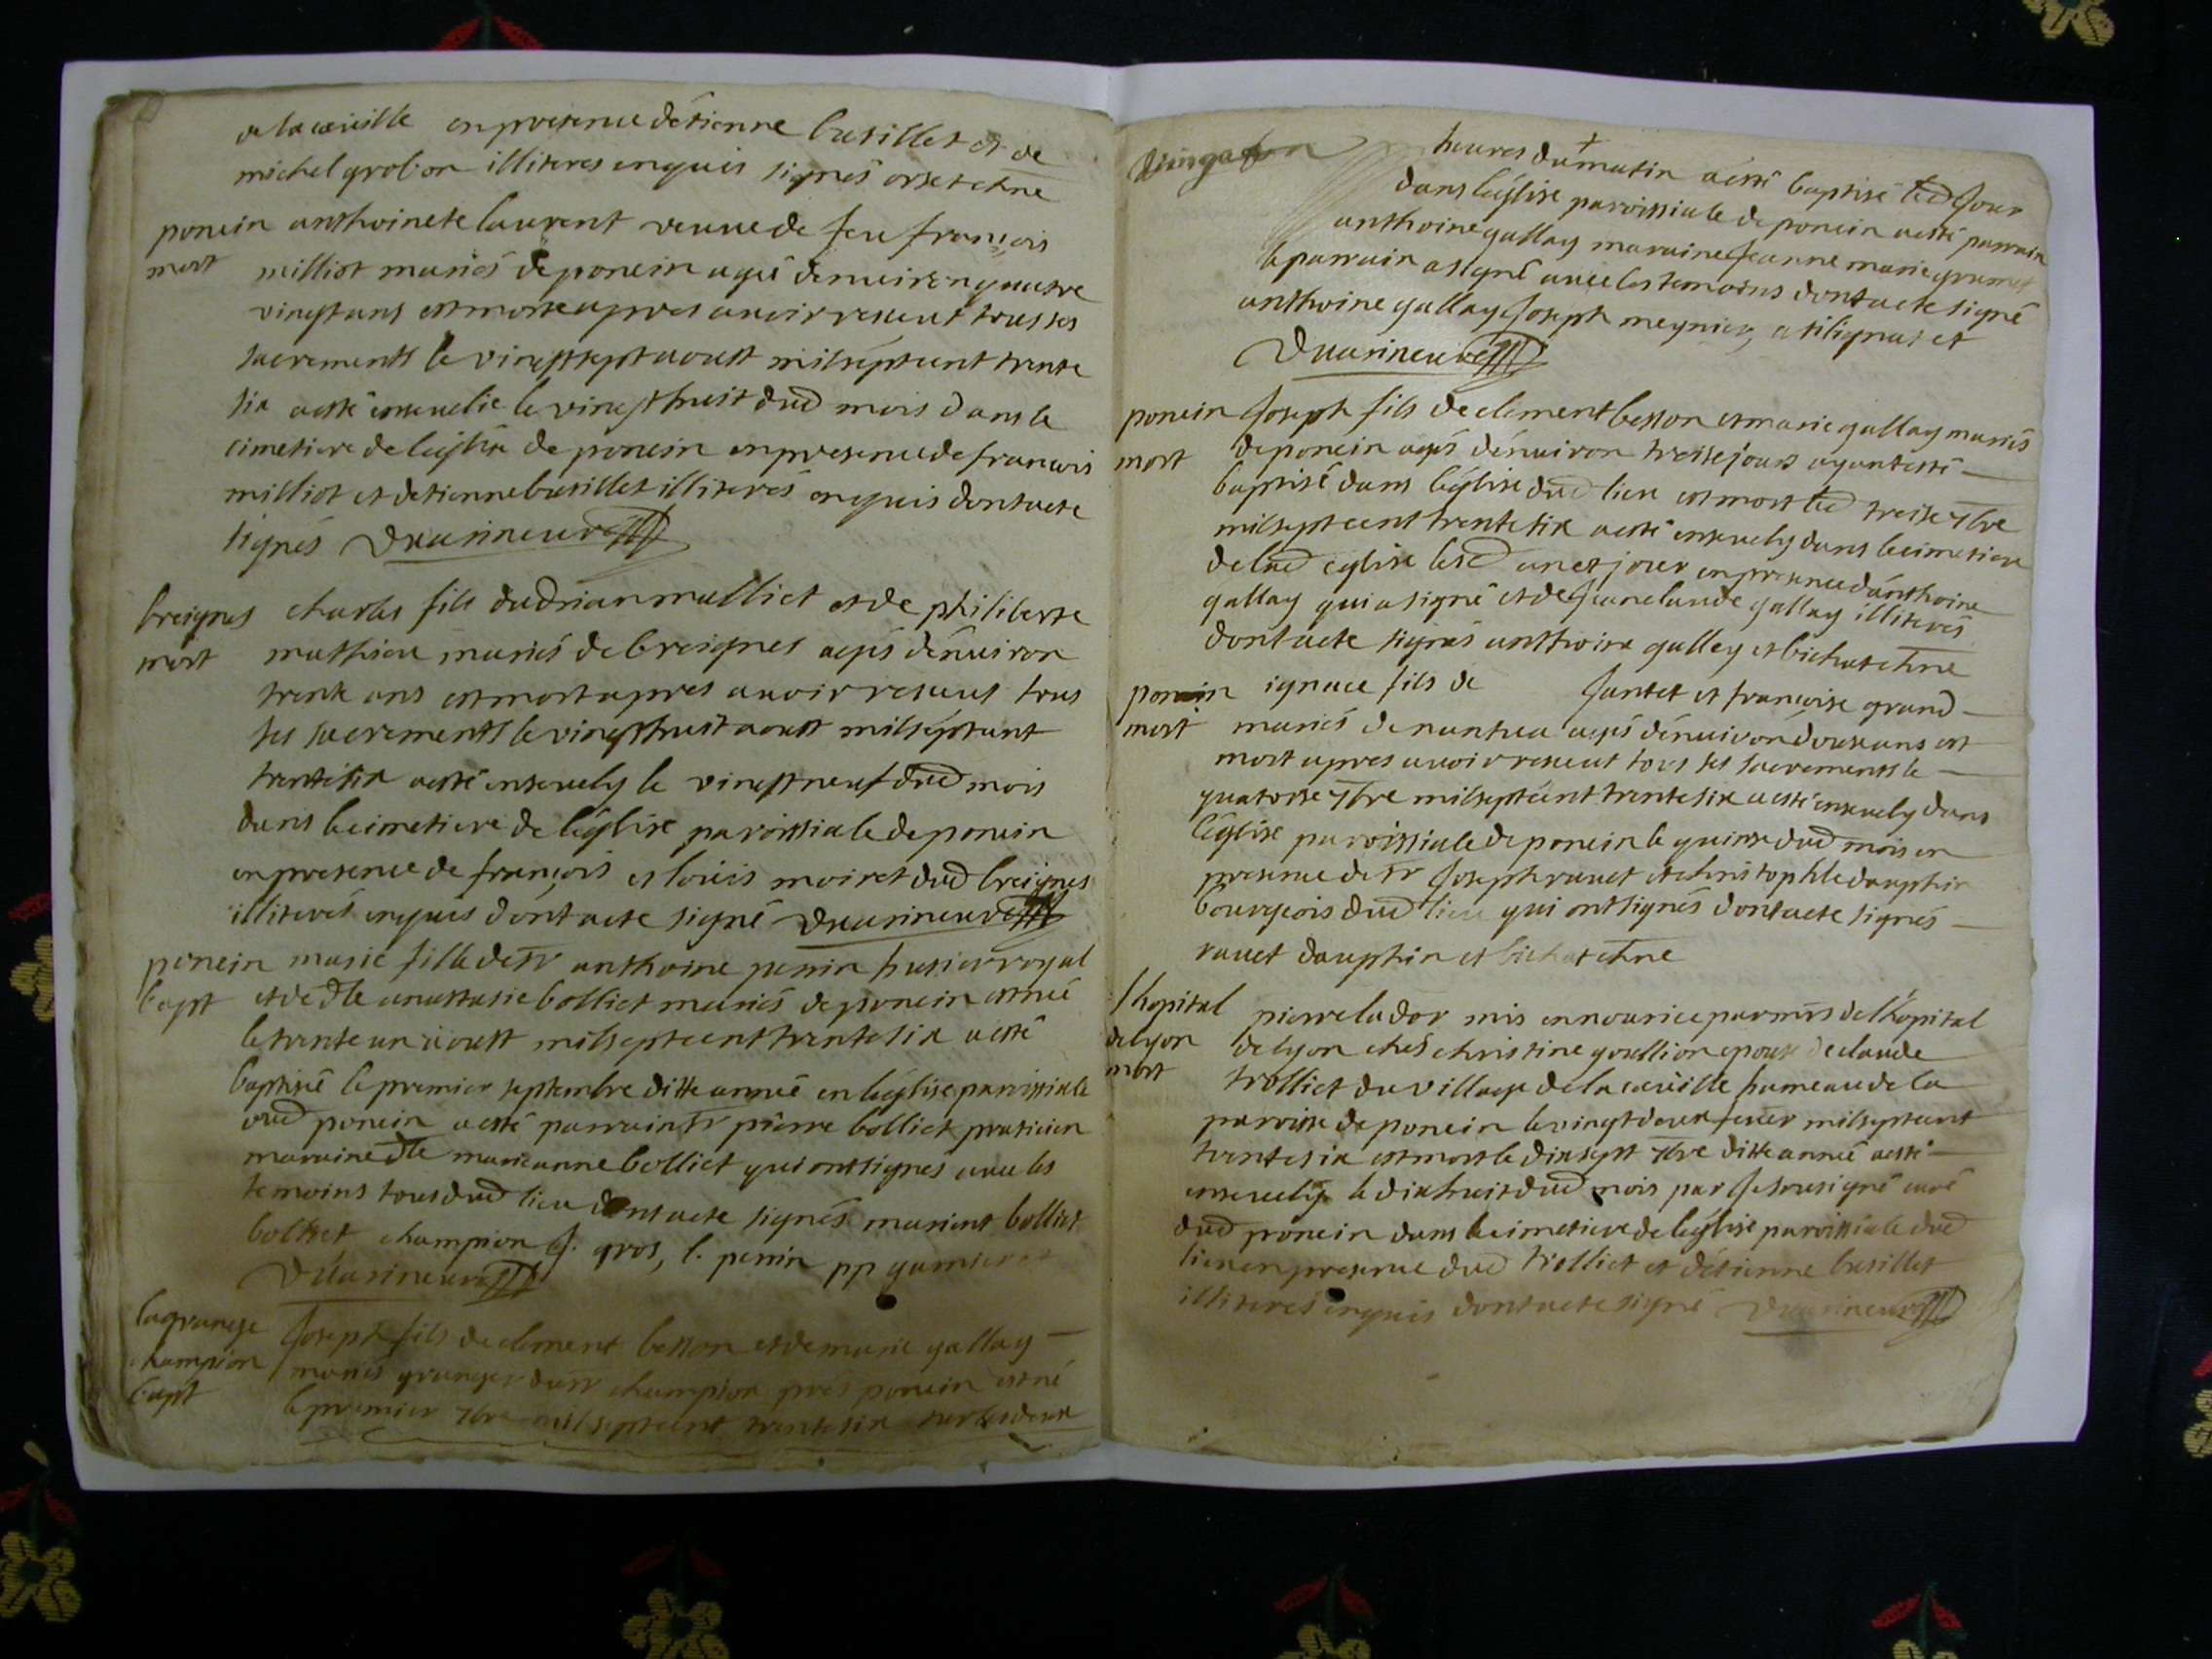 de la cüeille en presence détienne busillet et de
michel grobon illiteres enquis signés orset chne
poncin anthoinete laurent veuve de feu françois
mort milliot mariés de poncin agé denviron quatre
vingt ans est morte apres avoir receut tous ses
sacrements le vingt sept aoust mil sept cent trente
six a esté ensevelie le vingt huit dud mois dans le
cimetiere de léglise de poncin en presence de francois
milliot et detienne busillet illiterés enquis dont acte
signés
breignes charles fils dadrian mulliet et de philiberte
mort mathieu mariés de breignes agés dénviron
trente ans est mort apres avoir receut tous
ses sacrements le vingt huit aoust mil sépt cent
trente six a esté ensevely le vingt neuf dud mois
dans le cimetiere de léglise paroissiale de poncin
en presence de françois et loüis moiret dud breignes
illiterés enquis dont acte signé
poncin marie fille de sr anthoine perrin husier royal
bapt et de dlle anastasie bolliet mariés de poncin est née
le trente un aoust mil sept cent trente six a esté
baptisée le premier septembre ditte année en léglise paroissiale
dud poncin a esté parrain sr pierre bolliet praticien
maraine dlle marianne bolliet qui ont signés avec les
temoins tous dud lieu dont acte signés marient bolliet
bolliet champion J. gros, l. perrin pp
lagrange Joseph fils de clement besson et de marie gallay
champion mariés granger du sr champion pres poncin est né
bapt le premier 7bre mil sept cent trente six sur les deux
heures du matin a esté baptisé led jour
dans léglise paroissiale de poncin a esté parrain
anthoine gallay maraine Jeanne marie
le parrain a signé avec les temoins dont acte signé
anthoine gallay Joseph meynier, a tilignat et
poncin Joseph fils de clement besson et marie gallay mariés
mort de poncin agés dénviron treise jours ayant esté
baptisé dans léglise dud lieu est mort led treise 7bre
mil sept cent trente six a esté ensevely dans le cimetiere
de lad églisse lesd an et jour en presence danthoine
gallay qui a signé et de Jean claude gallay illiterés
dont acte signés anthoine galley et bichat chne
poncin ignace fils de Jantet et francoise grand
mort mariés de nantua agés dénviron douse ans est
mort apres avoir receut tous ses sacrements le
quatorse 7bre mil sept cent trente six a esté ensevely dans
léglise paroissiale de poncin le quinse dud mois en
presence de sr Joseph ravet et christophle dauphin
bourgeois dud lieu qui ont signés dont acte signés
ravet dauphin et bichat chne
lhopital pierre lador mis en nourice par mrs de lhôpital
de lyon de lyon chés christine goullion epouse de claude
mort trolliet du village de la cüeille hameau de la
paroisse de poncin le vingt deux fever mil sept cent
trente six est mort le dix sept 7bre ditte année a esté
ensevely le dix huit dud mois par Je sousigné curé
dud poncin dans le cimetiere de léglise paroissiale dud
lieu en presence dud trolliet et détienne busillet
illiterés enquis dont acte signé